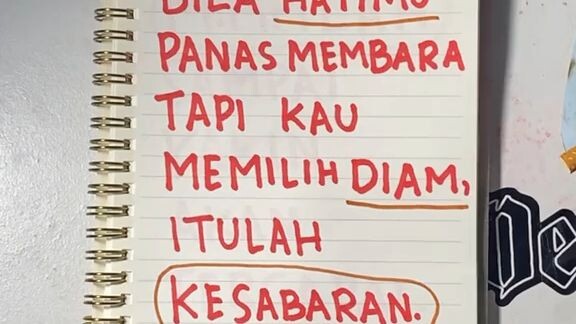 BILA HATIMU
PANAS MEMBARA
TAPI KAU
MEMILIH DIAM,
ITULAH
KESABARAN.
De